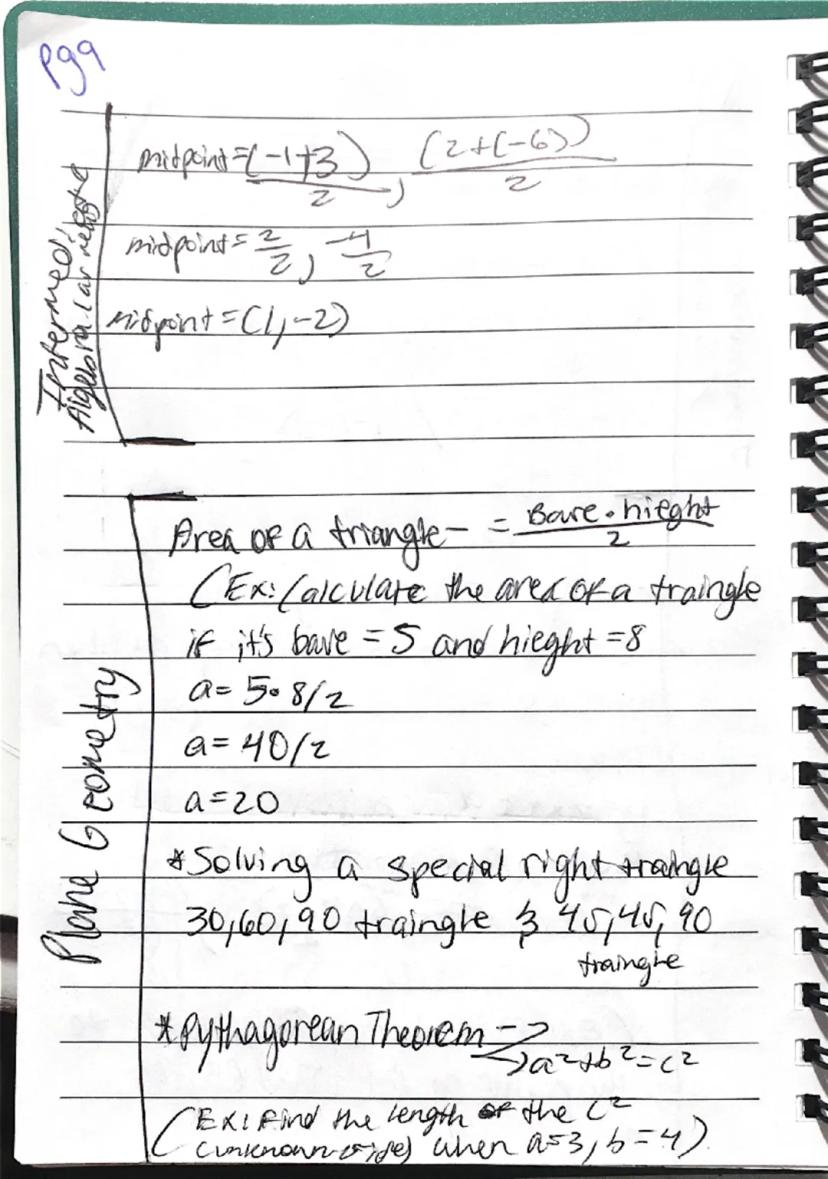 pg9
Intermed.
Algebra
midpoint = (-1+3)/2, (2+(-6))/2
midpoint = 2/2, -4/2
midpoint = (1, -2)
Plane Geometry
Area of a triangle - = Base • hieght/2
(Ex: Calculate the area of a traingle
if it's base = 5 and hieght = 8
a = 5•8/2
a = 40/2
a = 20
*Solving a special right traingle
30,60,90 traingle & 45,45,90
traingle
*Pythagorean Theorem ->
-> a²+b²=c²
(Ex: Find the length of the c²
(unknown side) when a=3, b=4)